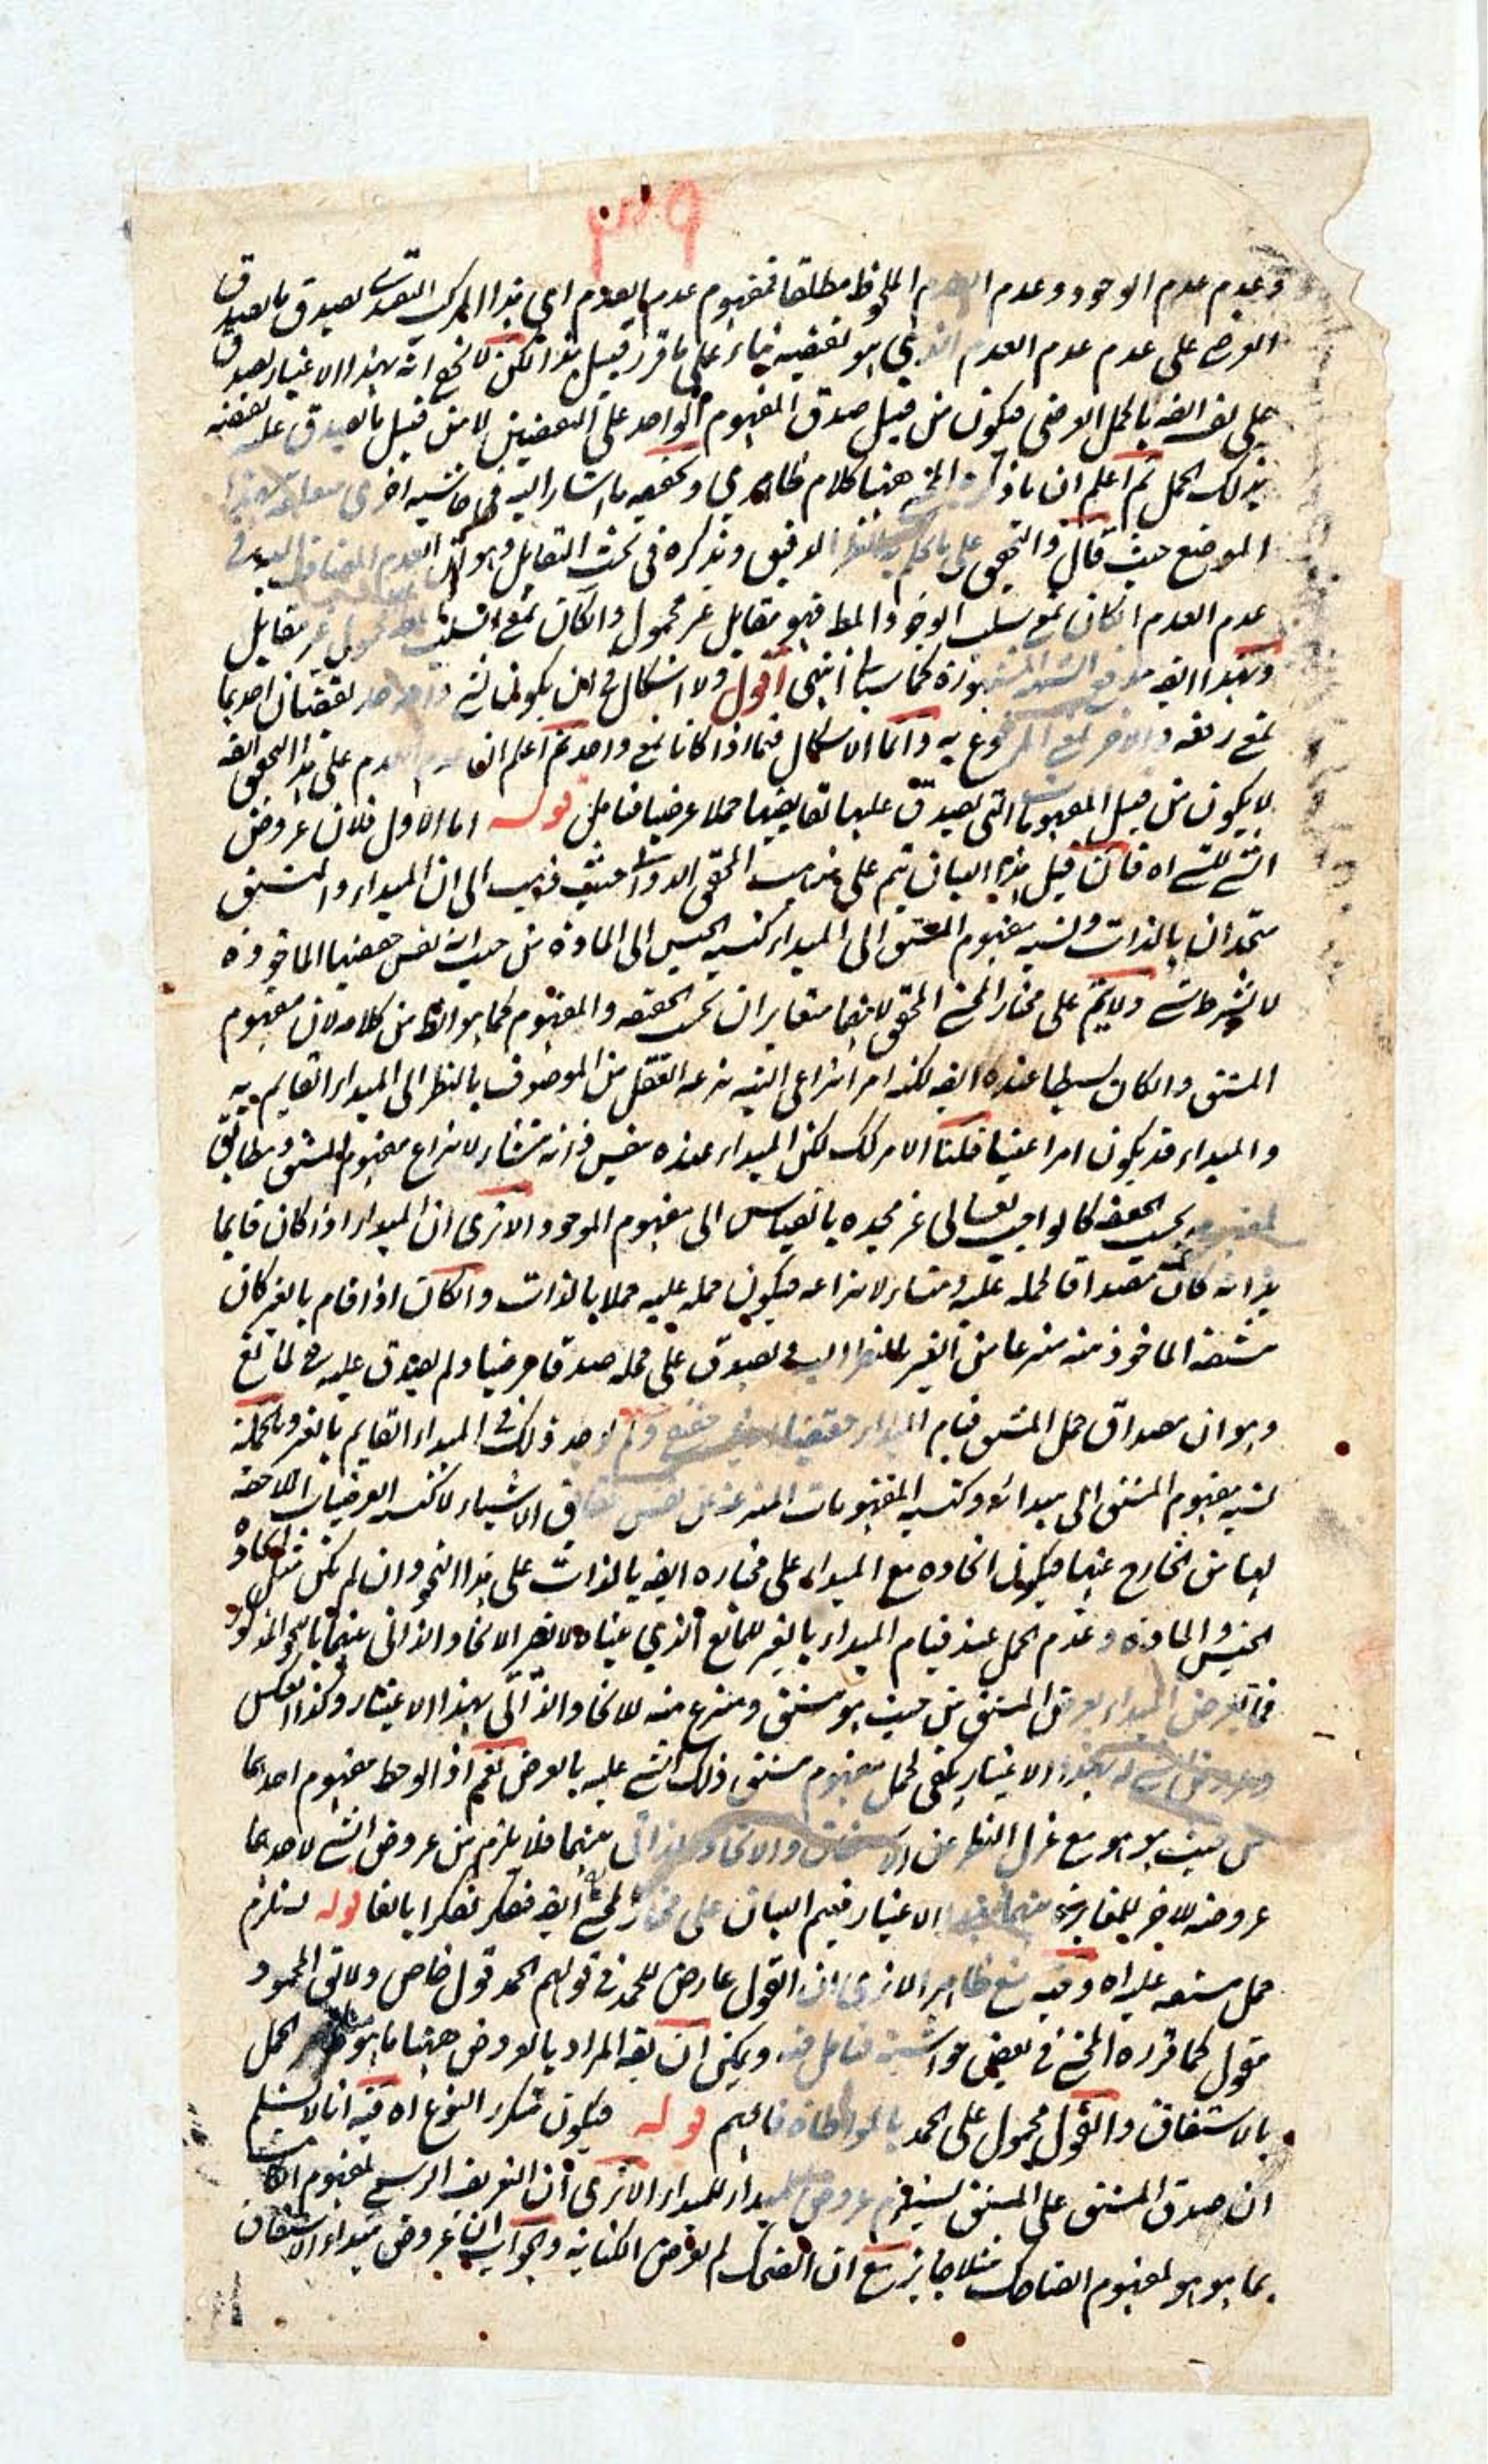 وعدم عدم الوجود وعدم العدم الملحوظ مطلقا فمفهوم عدم العدم اي هذا المركب التقييدي يصدق بالصدق
العرضي على عدم عدم العدم الذي هو نقيضه بناء على ما قرر قبيل هذا لكن لا يخفى انه بهذا الاعتبار يصدق
على نفسه ايضا بالحمل العرضي فيكون من قبيل صدق المفهوم الواحد على النقيضين لا من قبيل ما يصدق عليه نقيضه
بذلك الحمل ثم اعلم ان ما ذكره المحشي ههنا كلام ظاهري وتحقيقه ما اشار اليه في حاشيه اخرى
الموضع حيث قال والتحقيق على ما يحكم به النظر الدقيق ونذكره في بحث التقابل وهو ان العدم المضاف اليه في
عدم العدم ان كان بمعنى سلب الوجود المط فهو مقابل غير محمول وان كان بمعنى السلب محمول غير مقابل
وبهذا ايضه الشبهه المشهورة كما سياتي انتهى اقول ولا اشكال في ان يكون لشيء واحد نقيضان احدهما
بمعنى رفعه والاخر بمعنى المرفوع به وانما الاشكال فيما اذا كانا بمعنى واحد ثم اعلم ان عدم العدم على هذا التحقيق ايضه
لا يكون من قبيل المفهومات التي يصدق عليها نقايضها حملا عرضيا فتامل قوله اما الاول فلان عروض
الشي للشي اه فان قيل هذا البيان يتم على مذهب المحقق الدواني حيث ذهب الى ان المبداء والمشتق
متحدان بالذات ونسبه مفهوم المشتق الى المبداء كنسبه الجنس الى الماده من حيث انه نفس حقيقتها الماخوذه
لا بشرط شي ولا يتم على مختار المحشي المحقق لانهما متغايران بحسب الحقيقه والمفهوم كما هو الظ من كلامه لان مفهوم
المشتق وان كان بسيطا عنده ايضه لكنه امر انتزاعي البته ينزعه العقل من الموصوف بالنظر الى المبداء القايم به
والمبداء قد يكون امرا عينيا قلنا الامر كك لكن المبداء عنده بنفس ذاته منشاء لانتزاع مفهوم المشتق ومطابق
لمفهومه بحسب الحقيقه كالواجب تعالى عز مجده بالقياس الى مفهوم الموجود الا ترى ان المبداء اذا كان قايما
بذاته كان مصداقا لحمله عليه ومنشاء لانتزاعه فيكون حمله عليه حملا بالذات وان كان اذا قام بالغير كان
مشتقه الماخوذ منه منتزعا من الغير بالنظر اليه فيصدق على محله صدقا عرضيا ولم يصدق عليه لمانع
وهو ان مصداق حمل المشتق قيام المبداء ولم يوجد ذلك في المبداء القايم بالغير وبالجمله
نسبه مفهوم المشتق الى مبدائه كنسبه المفهومات المنتزعه عن نفس حقايق الاشياء لا كنسبه العرضيات اللاحقه
لها من الخارج عنها فيكون اتحاده مع المبداء على مختاره ايضه بالذات على هذا النحو وان لم يكن مثل اتحاد
الجنس والماده وعدم الحمل عند قيام المبداء بالغير للمانع الذي عيناه لا يضر الاتحاد الذاتي عنهما بالنحو المذكور
فما يعرض المبداء يعرض المشتق من حيث هو مشتق ومنتزع منه للاتحاد الذاتي بهذا الاعتبار وكذا العكس
وعروض الشي له بهذا الاعتبار يكفي لحمل مفهوم مشتق ذلك الشي عليه بالعرض نعم اذا لوحظ مفهوم احدهما
من حيث هو هو مع عزل النظر عن الاشتقاق والاتحاد الذاتي بينهما فلا يلزم من عروض الشي لاحدهما
عروضه للاخر للمغايره بينهما بهذا الاعتبار فيتم البيان على مختار المحشي ايضه فتفكر تفكرا بالغا قوله يستلزم
حمل مشتقه عليه اه وفيه منع ظاهر الا ترى ان القول عارض للحمد في قولهم الحمد قول خاص ولا يق المحمود
مقول كما قرره المحشي في بعض حواشيه فتامل فيه ويمكن ان يقه المراد بالعروض ههنا ما هو الحمل
بالاشتقاق والقول محمول على الحمد بالمواطاه فافهم قوله فيكون متكرر النوع اه فيه انا لا نسلم
ان صدق المشتق على المشتق يستلزم عروض المبداء للمبداء الا ترى ان التعريف الرسمي لمفهوم الكاتب
بما هو هو لمفهوم الضاحك مثلا جايز مع ان الضحك لم يعرض الكتابه والجواب ان عروض مبداء الاشتقاق